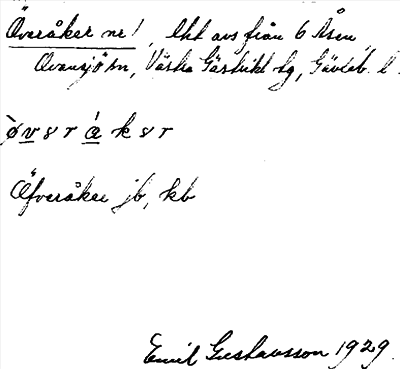 Överåker nr 1, lht avs från 6 Åsen,
Ovansjö sn, Västra Gästrikl. tg, Gävleb. l.
Öfveråker jb, kb
Emil Gustavsson 1929.